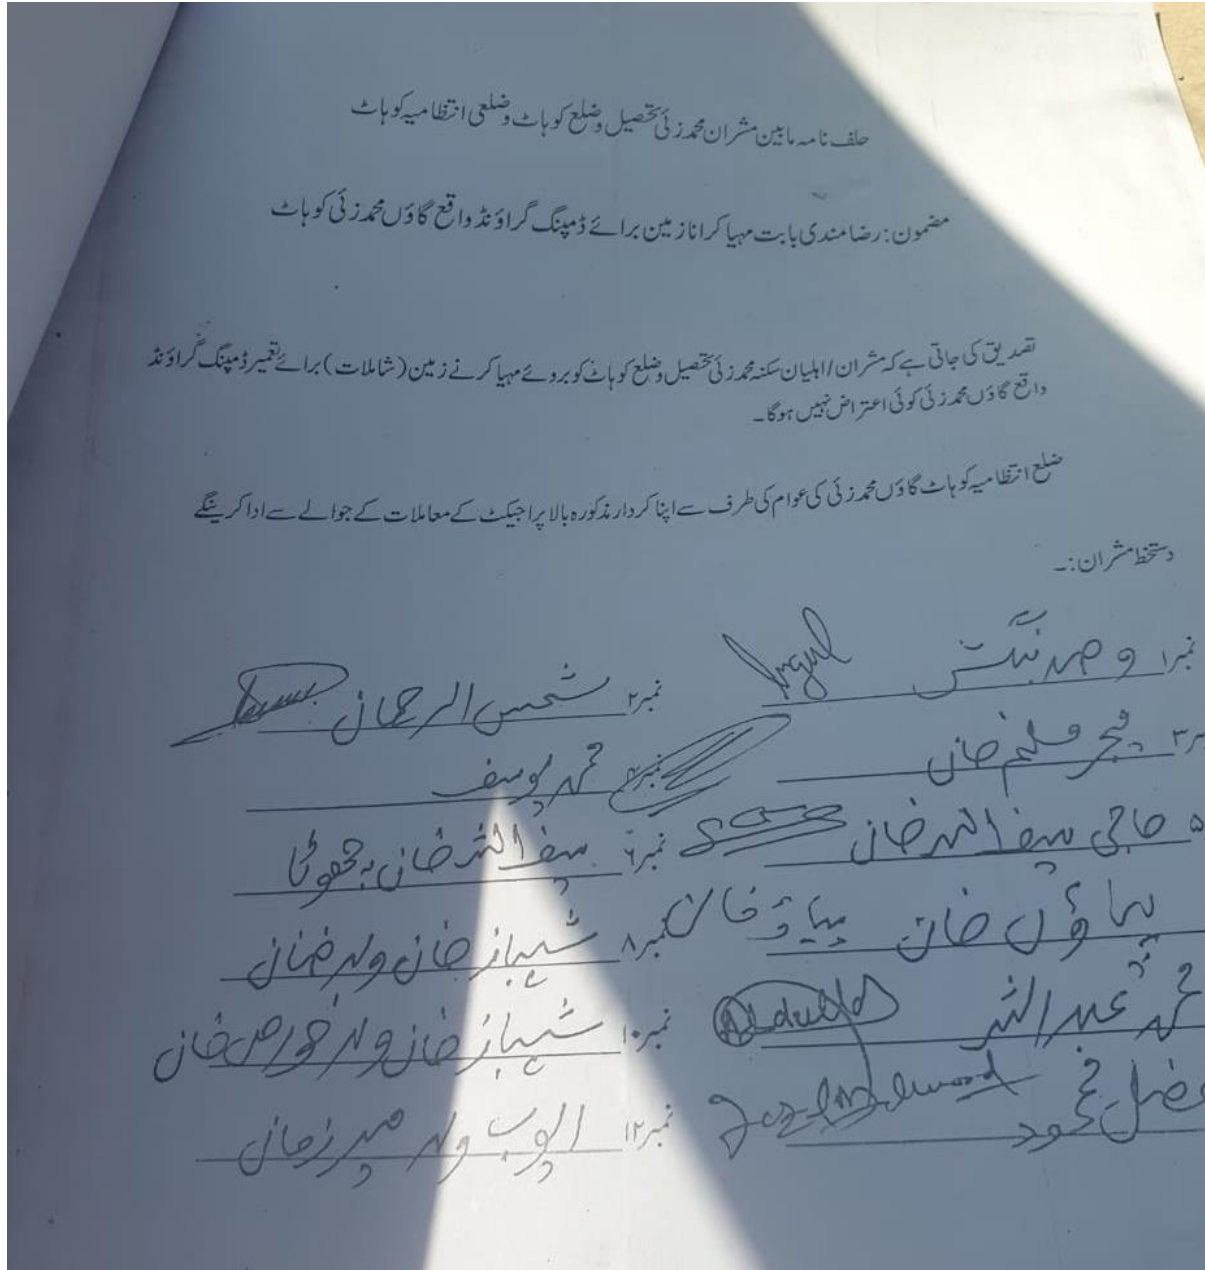 حلف نامہ مابین مشران محمدزئی تحصیل و ضلع کوہاٹ و ضلعی انتظامیہ کوہاٹ
مضمون: رضامندی بابت مہیا کرانا زمین برائے ڈمپنگ گراؤنڈ واقع گاؤں محمدزئی کوہاٹ
تصدیق کی جاتی ہے کہ مشران/اہلیان سکنہ محمدزئی تحصیل و ضلع کوہاٹ کو بروئے مہیا کرنے زمین (شاملات) برائے تعمیر ڈمپنگ گراؤنڈ
واقع گاؤں محمدزئی کوئی اعتراض نہیں ہوگا۔
ضلع انتظامیہ کوہاٹ گاؤں محمدزئی کی عوام کی طرف سے اپنا کردار مذکورہ بالا پراجیکٹ کے معاملات کے حوالے سے ادا کرینگے
دستخط مشران:۔
نمبر۱ نمبر۲ شمس الرحمان
خان نمبر۴ محمد یوسف
۵ حاجی سیف اللہ خان نمبر۶ سیف اللہ خان
خان نمبر۸ شہباز خان ولد
محمد عبداللہ Abdullah نمبر۱۰ شہباز خان ولد خان
فضل محمود Fazl Mehmood نمبر۱۲ ایوب ولد میر زمان